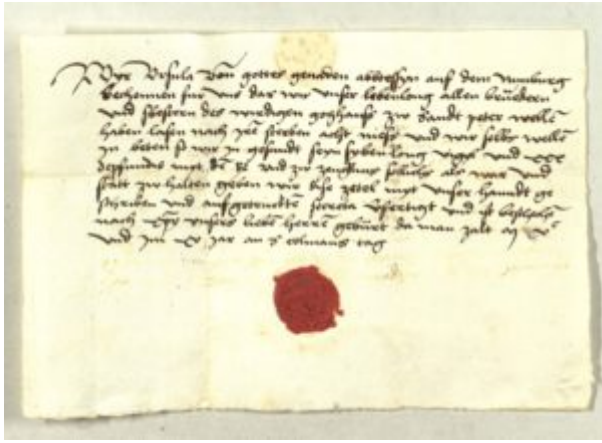 Wyr Ursula von gottes genaden abbtessyn auf dem Nunburg
bechennen fur uns das wir unser lebenlang allen bruedern
und swestern des wirdigen gozhauss zw Sandt peter wellē
haben lasen nach irē sterben acht mess und wir selbs wellē
zu beten so wir in gesundt seyn syben long vigily und xxx
myt dē und zw zeugnus solichs als war und
statt zw halten geben wir dise zetel myt unser handt ge
schriben und aufgetruckten secreta und ist beschehn
nach xpi unsers liebē herrē geburt da man zalt M vᶜ
und im xv jar an s colmans tag